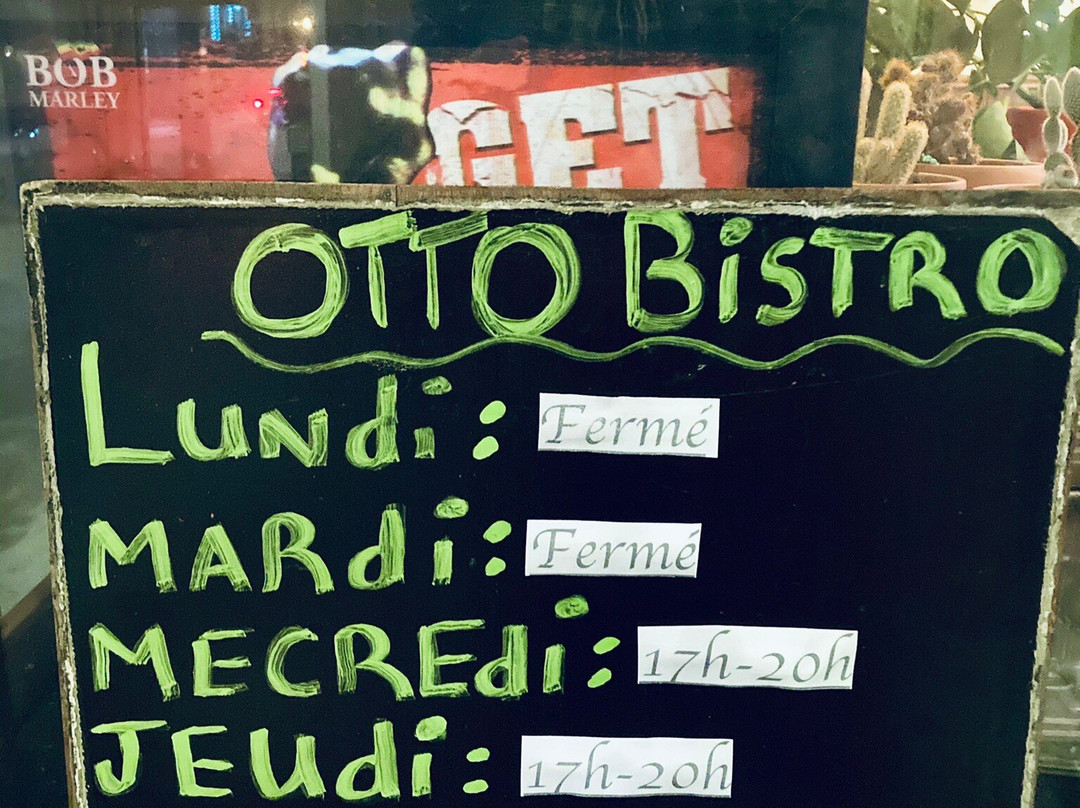 BOB
MARLEY
GET
OTTO BiSTRO
LUNdi : Fermé
MARdi : Fermé
MECREdi : 17h-20h
JEUdi : 17h-20h